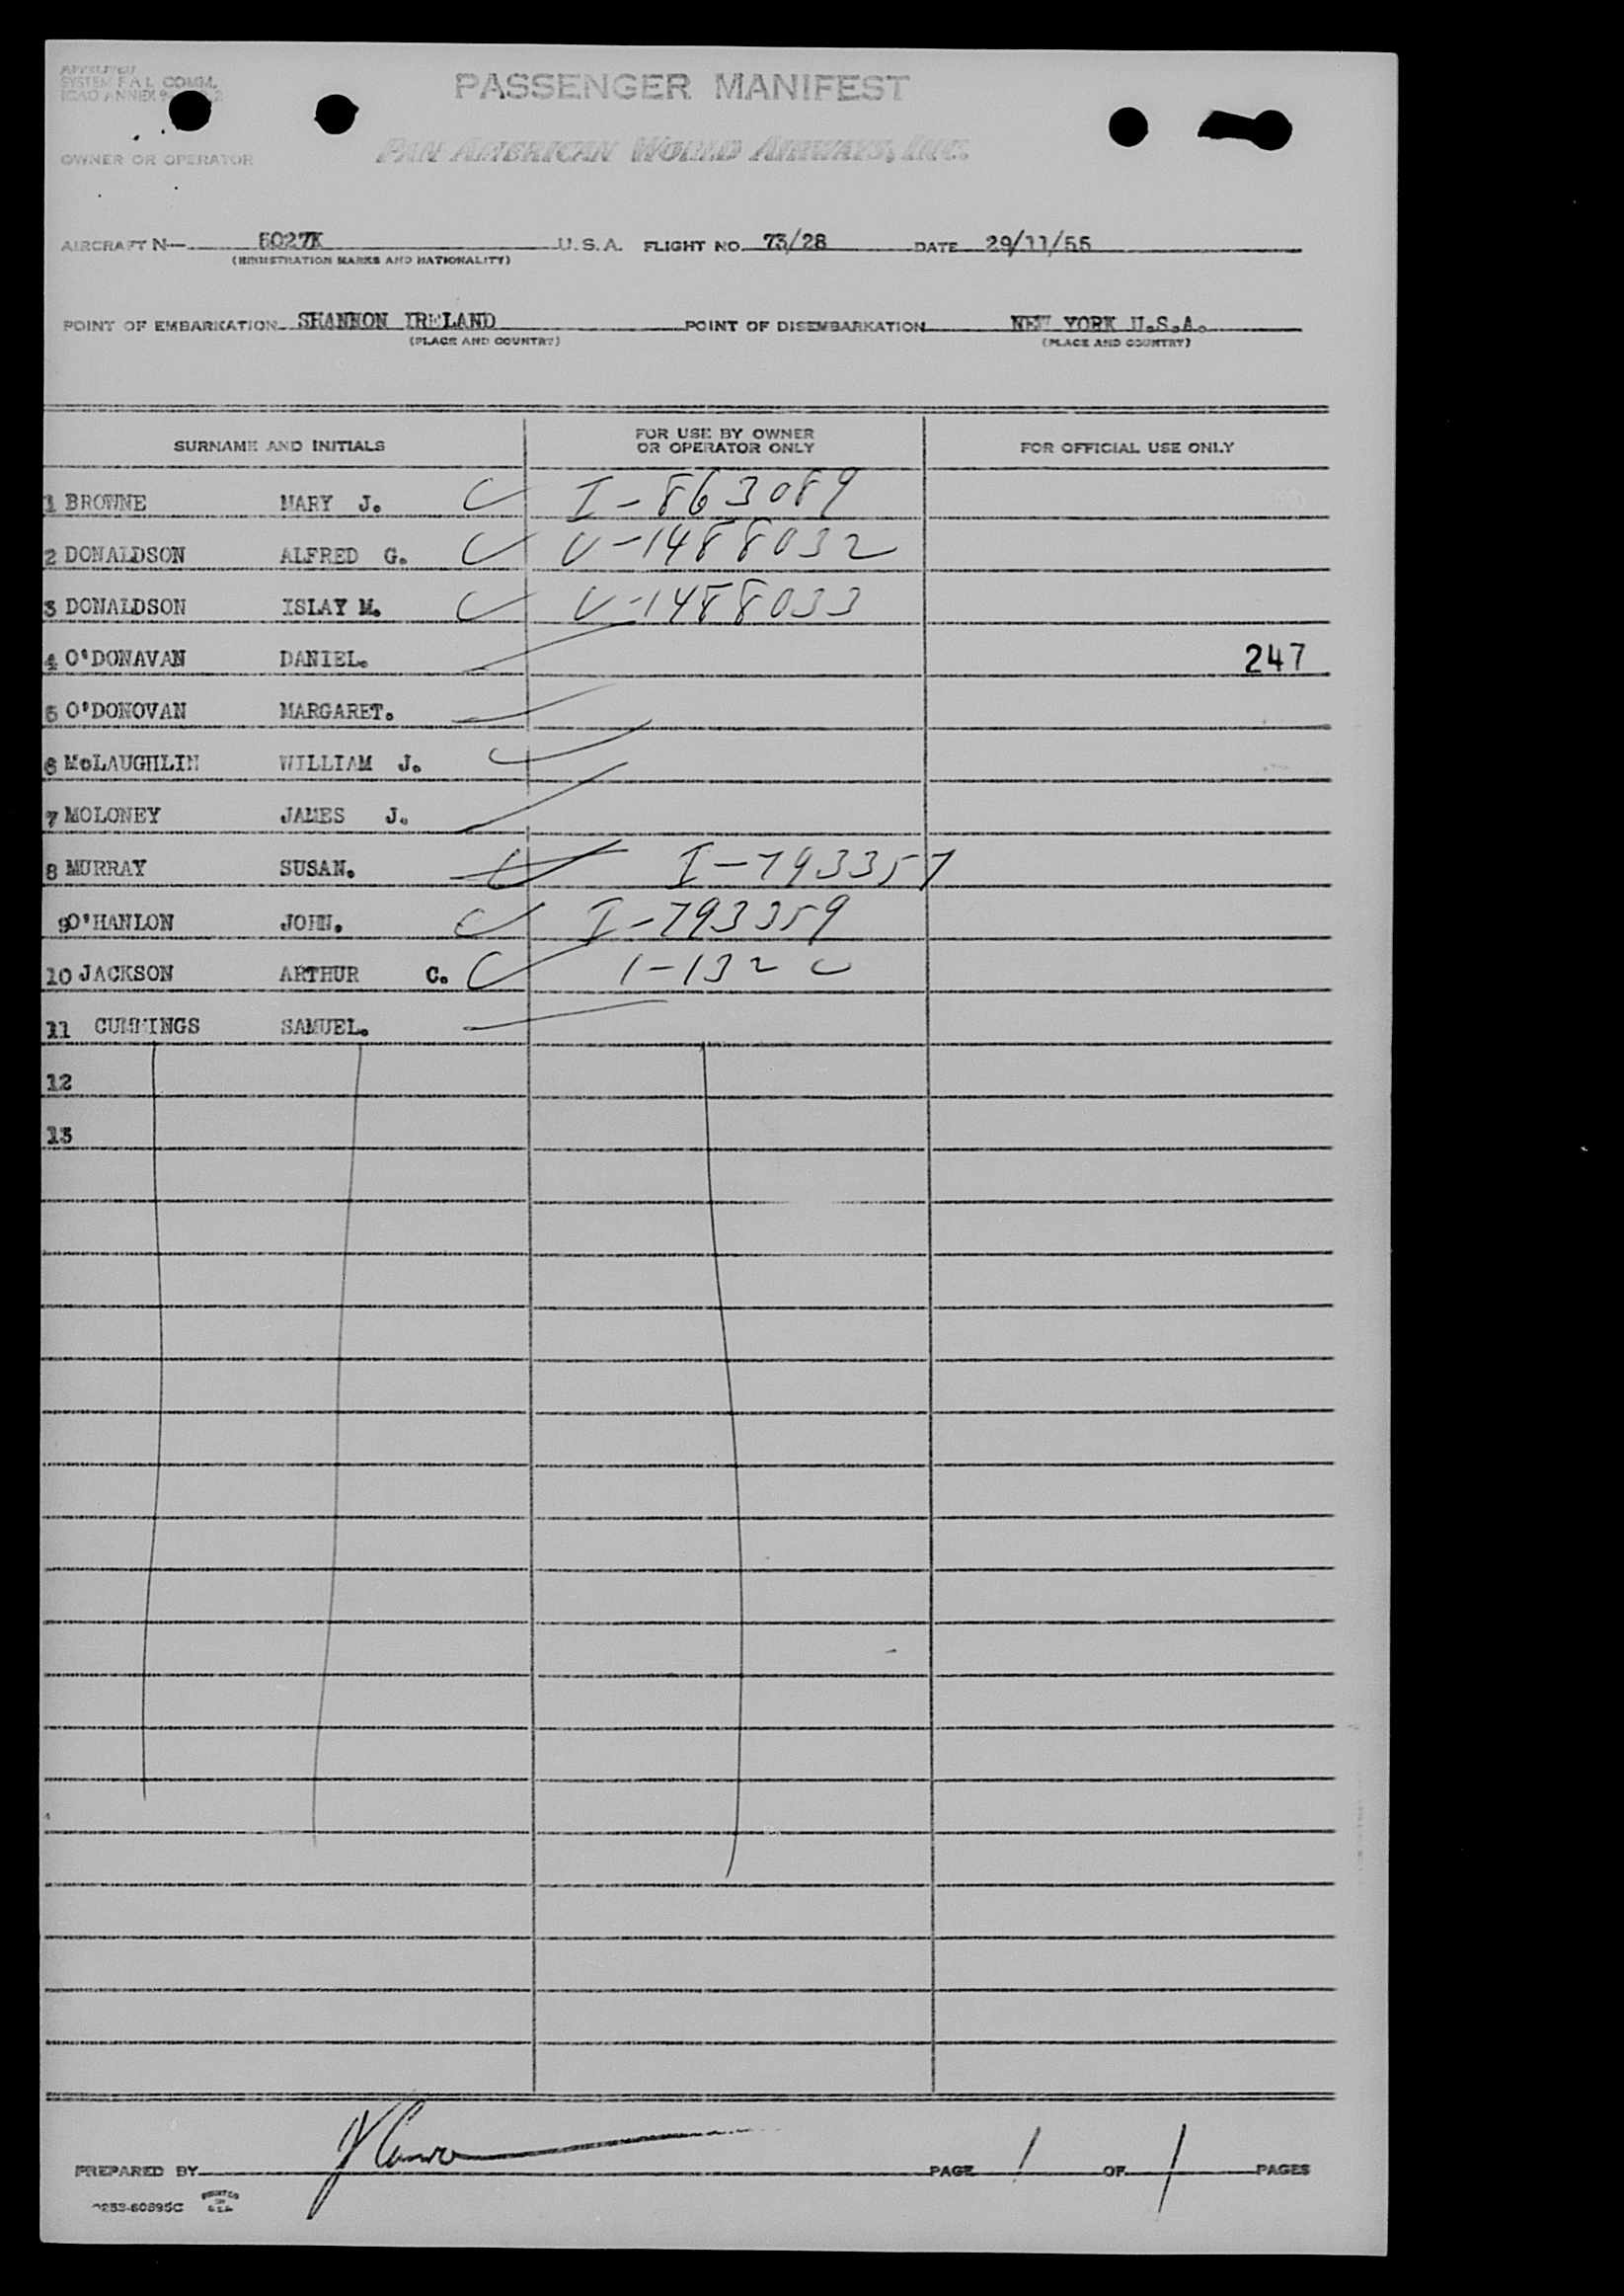 SYSTEM F.A.L. COMM.
ICAO ANNEX 9
PASSENGER MANIFEST
OWNER OR OPERATOR PAN AMERICAN WORLD AIRWAYS, INC.
AIRCRAFT N— 5027K U.S.A. FLIGHT NO. 73/28 DATE 29/11/55
(REGISTRATION MARKS AND NATIONALITY)
POINT OF EMBARKATION SHANNON IRELAND POINT OF DISEMBARKATION NEW YORK U.S.A.
(PLACE AND COUNTRY) (PLACE AND COUNTRY)
SURNAME AND INITIALS FOR USE BY OWNER OR OPERATOR ONLY FOR OFFICIAL USE ONLY
1 BROWNE MARY J. I-863089
2 DONALDSON ALFRED G. V-1488032
3 DONALDSON ISLAY M. V-1488033
4 O'DONAVAN DANIEL. 247
5 O'DONOVAN MARGARET.
6 McLAUGHLIN WILLIAM J.
7 MOLONEY JAMES J.
8 MURRAY SUSAN. I-793357
9 O'HANLON JOHN. I-793359
10 JACKSON ARTHUR C. 1-132
11 CUMMINGS SAMUEL.
12
13
PREPARED BY PAGE 1 OF 1 PAGES
PRINTED IN U.S.A.